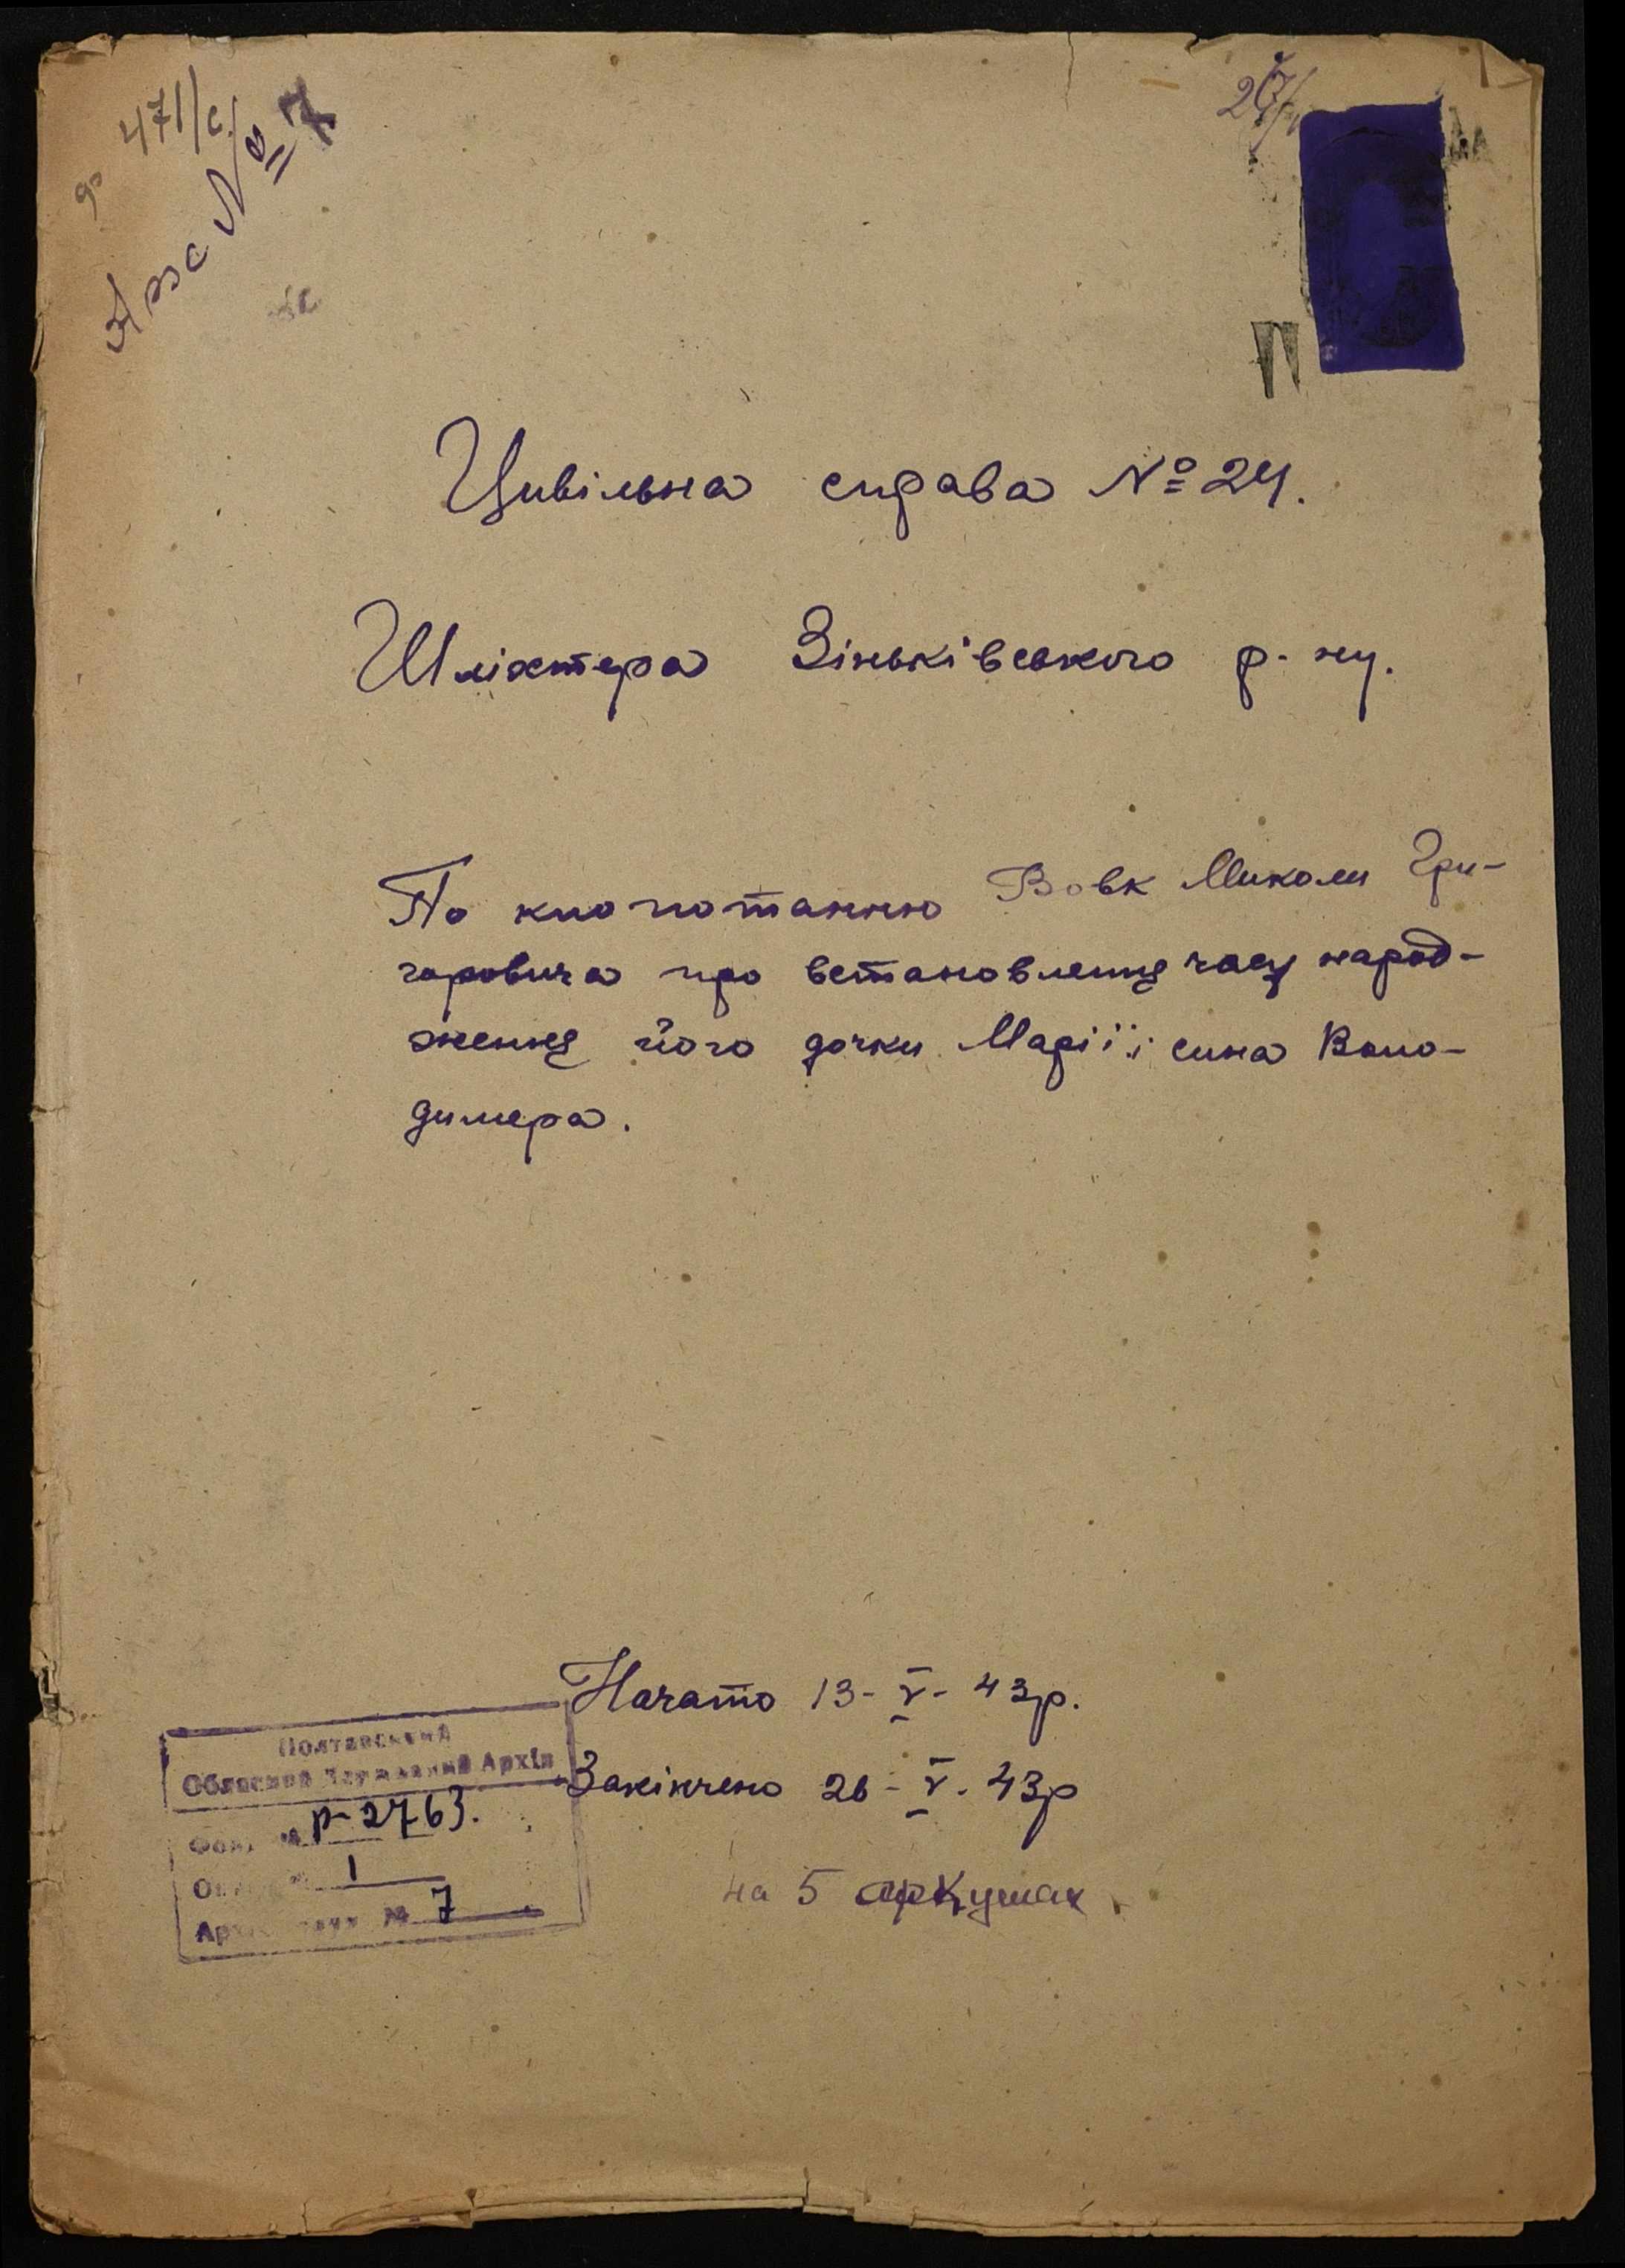 471/с
Арх № 7
Цивільна справа № 24.
Шліхтера Зіньківського р-ну.
По клопотанню Вовк Миколи Гри-
горовича про встановленне часу народ-
женне його дочки Марії і сина Воло-
димера.
Начато 13-V-43р.
Закінчено 26-V-43р
на 5 аркушах
Полтавський
Обласний Державний Архів
Фонд № р-2763.
Опис № 1
Арх. №  7